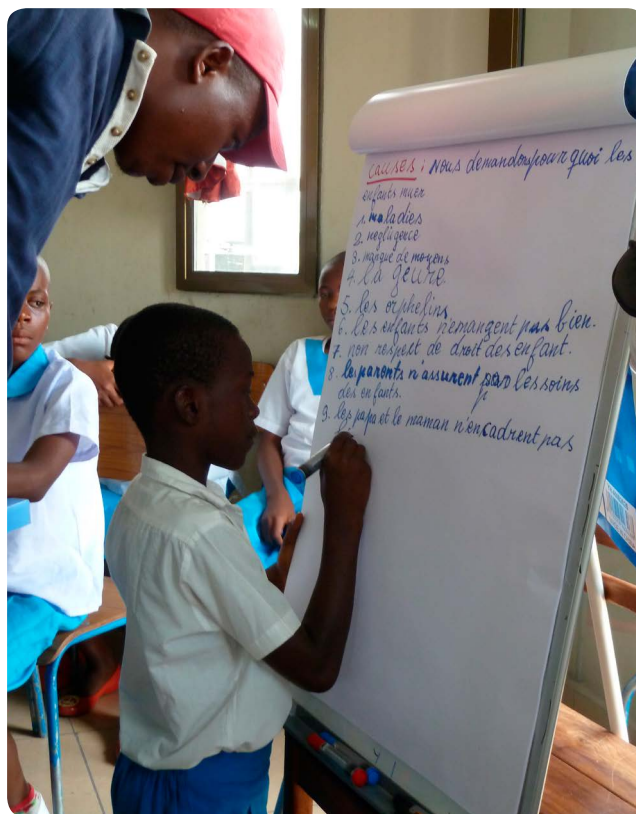 causes : Nous demandons pourquoi les
enfants muer
1. maladies
2. neglugence
3. manque de moyens
4. la geure
5. les orphelins
6. les enfants n'emangent pas bien.
7. non respect de droit des enfant.
8. les parents n'assurent pas les soins
des enfants.
9. les papa et le maman n'encadrent pas